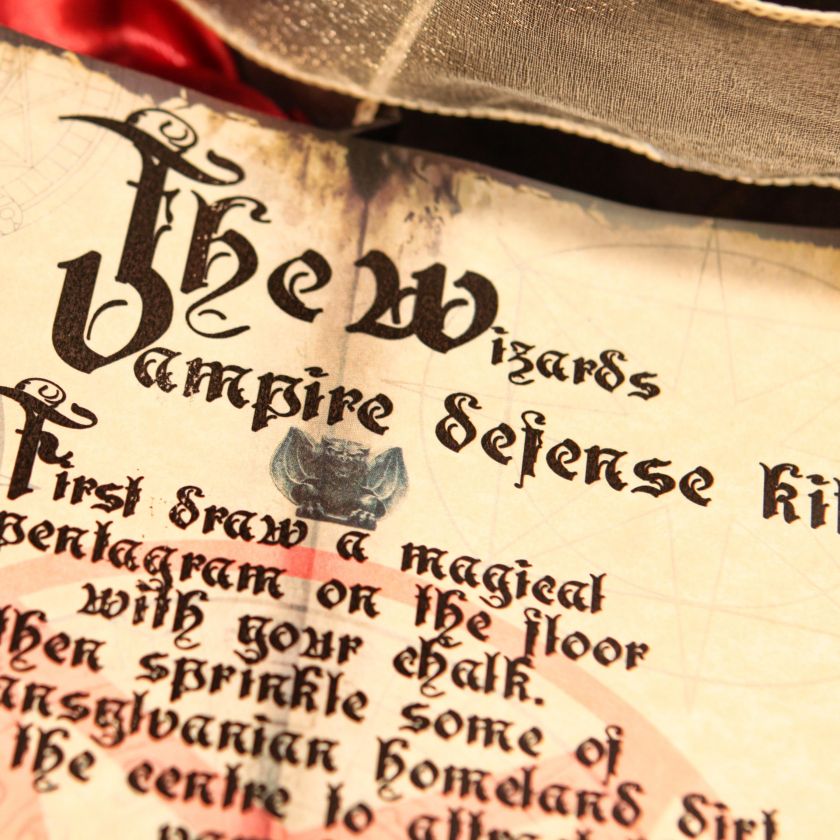 The Wizards
Vampire defense ki
First draw a magical
pentagram on the floor
with your chalk.
then sprinkle some of
ansylvanian homeland dirt
the centre to